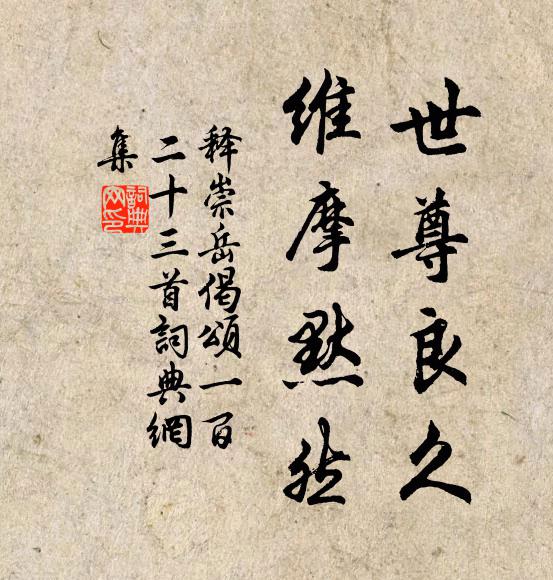 世尊良久
维摩默然
释崇岳偈颂一百
二十三首詞典網
集
詞典
网印